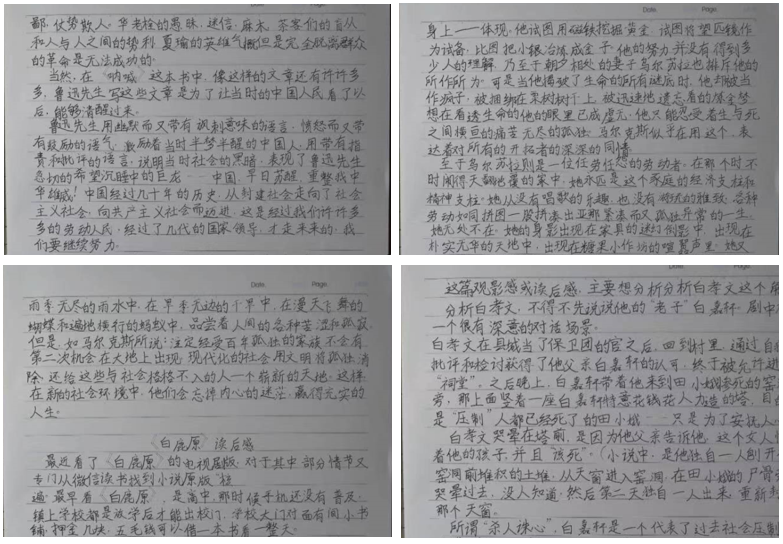 鄙，仗势欺人。华老栓的愚昧，迷信，麻木，茶客们的盲从
和人与人之间的势利，夏瑜的英雄气概但是完全脱离群众
的革命是无法成功的。
当然，在《呐喊》这本书中，像这样的文章还有许许多
多，鲁迅先生写这些文章是为了让当时的中国人民看了以
后，能够清醒过来。
鲁迅先生用幽默而又带有讽刺意味的语言，愤怒而又带
有鼓励的语气，激励着当时半梦半醒的中国人，用带有指
责和批评的语言，说明当时社会的黑暗，表现了鲁迅先生
急切的希望沉睡中的巨龙——中国，早日苏醒，重整我中
华雄威！中国经过几十年的历史，从封建社会走向了社会
主义社会，向共产主义社会而迈进，这是经过我们许许多
多的劳动人民，经过了几代的国家领导，才走来来的，我
们要继续努力.
Date Page
身上——体现，他试图用磁铁挖掘黄金，试图将望远镜作
为武器，比图把小银冶炼成金子，他的努力并没有得到多
少人的理解，乃至于朝夕相处的妻子乌尔苏拉也排斥他的
所作所为，可是当他揭破了生命的所有谜底时，他却被当
作疯子，被捆绑在栗树树干上，被迅速地遗忘着的原罗梦
想在看透生命的他的眼里已成虚无，他只能忍受着生与死
之间横亘的痛苦无尽的孤独，马尔克斯似乎在用这个，表
达着对所有的开拓者的深深的同情.
至于乌尔苏拉则是一位任劳任怨的劳动者，在那个时不
时闹得天翻地覆的家中，她永远是这个家庭的经济支柱和
精神支柱，她从没有唱歌的乐趣，也没有 的雅致，各种
劳动如同拼图一般拼凑出亚那紧凑而又孤独异常的一生，
她无处不在，她的身影出现在家具的迷灯倒影中，出现在
朴实无华的天地中，出现在糖果小作坊的喧嚣声里，她又
Date Page
雨季无尽的雨水中，在旱季无边的干旱中，在漫天飞舞的
蝴蝶和遍地横行的蚂蚁中，品尝着人间的各种苦涩和孤寂.
但是，如马尔克斯所说：注定经受百年孤独的家族不会有
第二次机会在大地上出现，现代化的社会用文明将孤独消
除，还给这些与社会格格不入的人一个崭新的天地，这样
在新的社会环境中，他们会忘掉内心的迷茫，赢得充实的
人生.
《白鹿原》读后感
最近看了《白鹿原》的电视剧版，对于其中部分情节又
专门从微信读书找到小说原版
遍，最早看《白鹿原》，是高中，那时候手机还没有普及，
镇上学校都是放学后才能出校门，学校大门对面有间小书
铺，押金几块，五毛钱可以借一本书看一整天.
Date Page
这篇观影感或读后感，主要想分析分析白孝文这个
分析白孝文，不得不先说说他的“老子”白嘉轩，剧中
一个很有深意的对话场景.
白孝文在县城当了保卫团的官之后，回到村里，通过自
批评和检讨获得了他父亲白嘉轩的认可，终于被允许进
“祠堂”，之后晚上，白嘉轩带着他来到田小娥惨死的窑
旁，那上面竖着一座白嘉轩特意花钱花人力造的塔，目的
是“压制”人都已经死了的田小娥——只是为了安抚人
白孝文哭晕在塔前，是因为他父亲告诉他，这个女人
着他的孩子，并且“该死”.（小说中，是他独自一人刨开
窑洞前堆积的土堆，从天窗进入窑洞，在田小娥的尸骨旁
哭晕过去，没人知道，然后第二天独自一人出来，重新
那个天窗.
所谓“杀人诛心”，白嘉轩是一个代表了过去社会压制